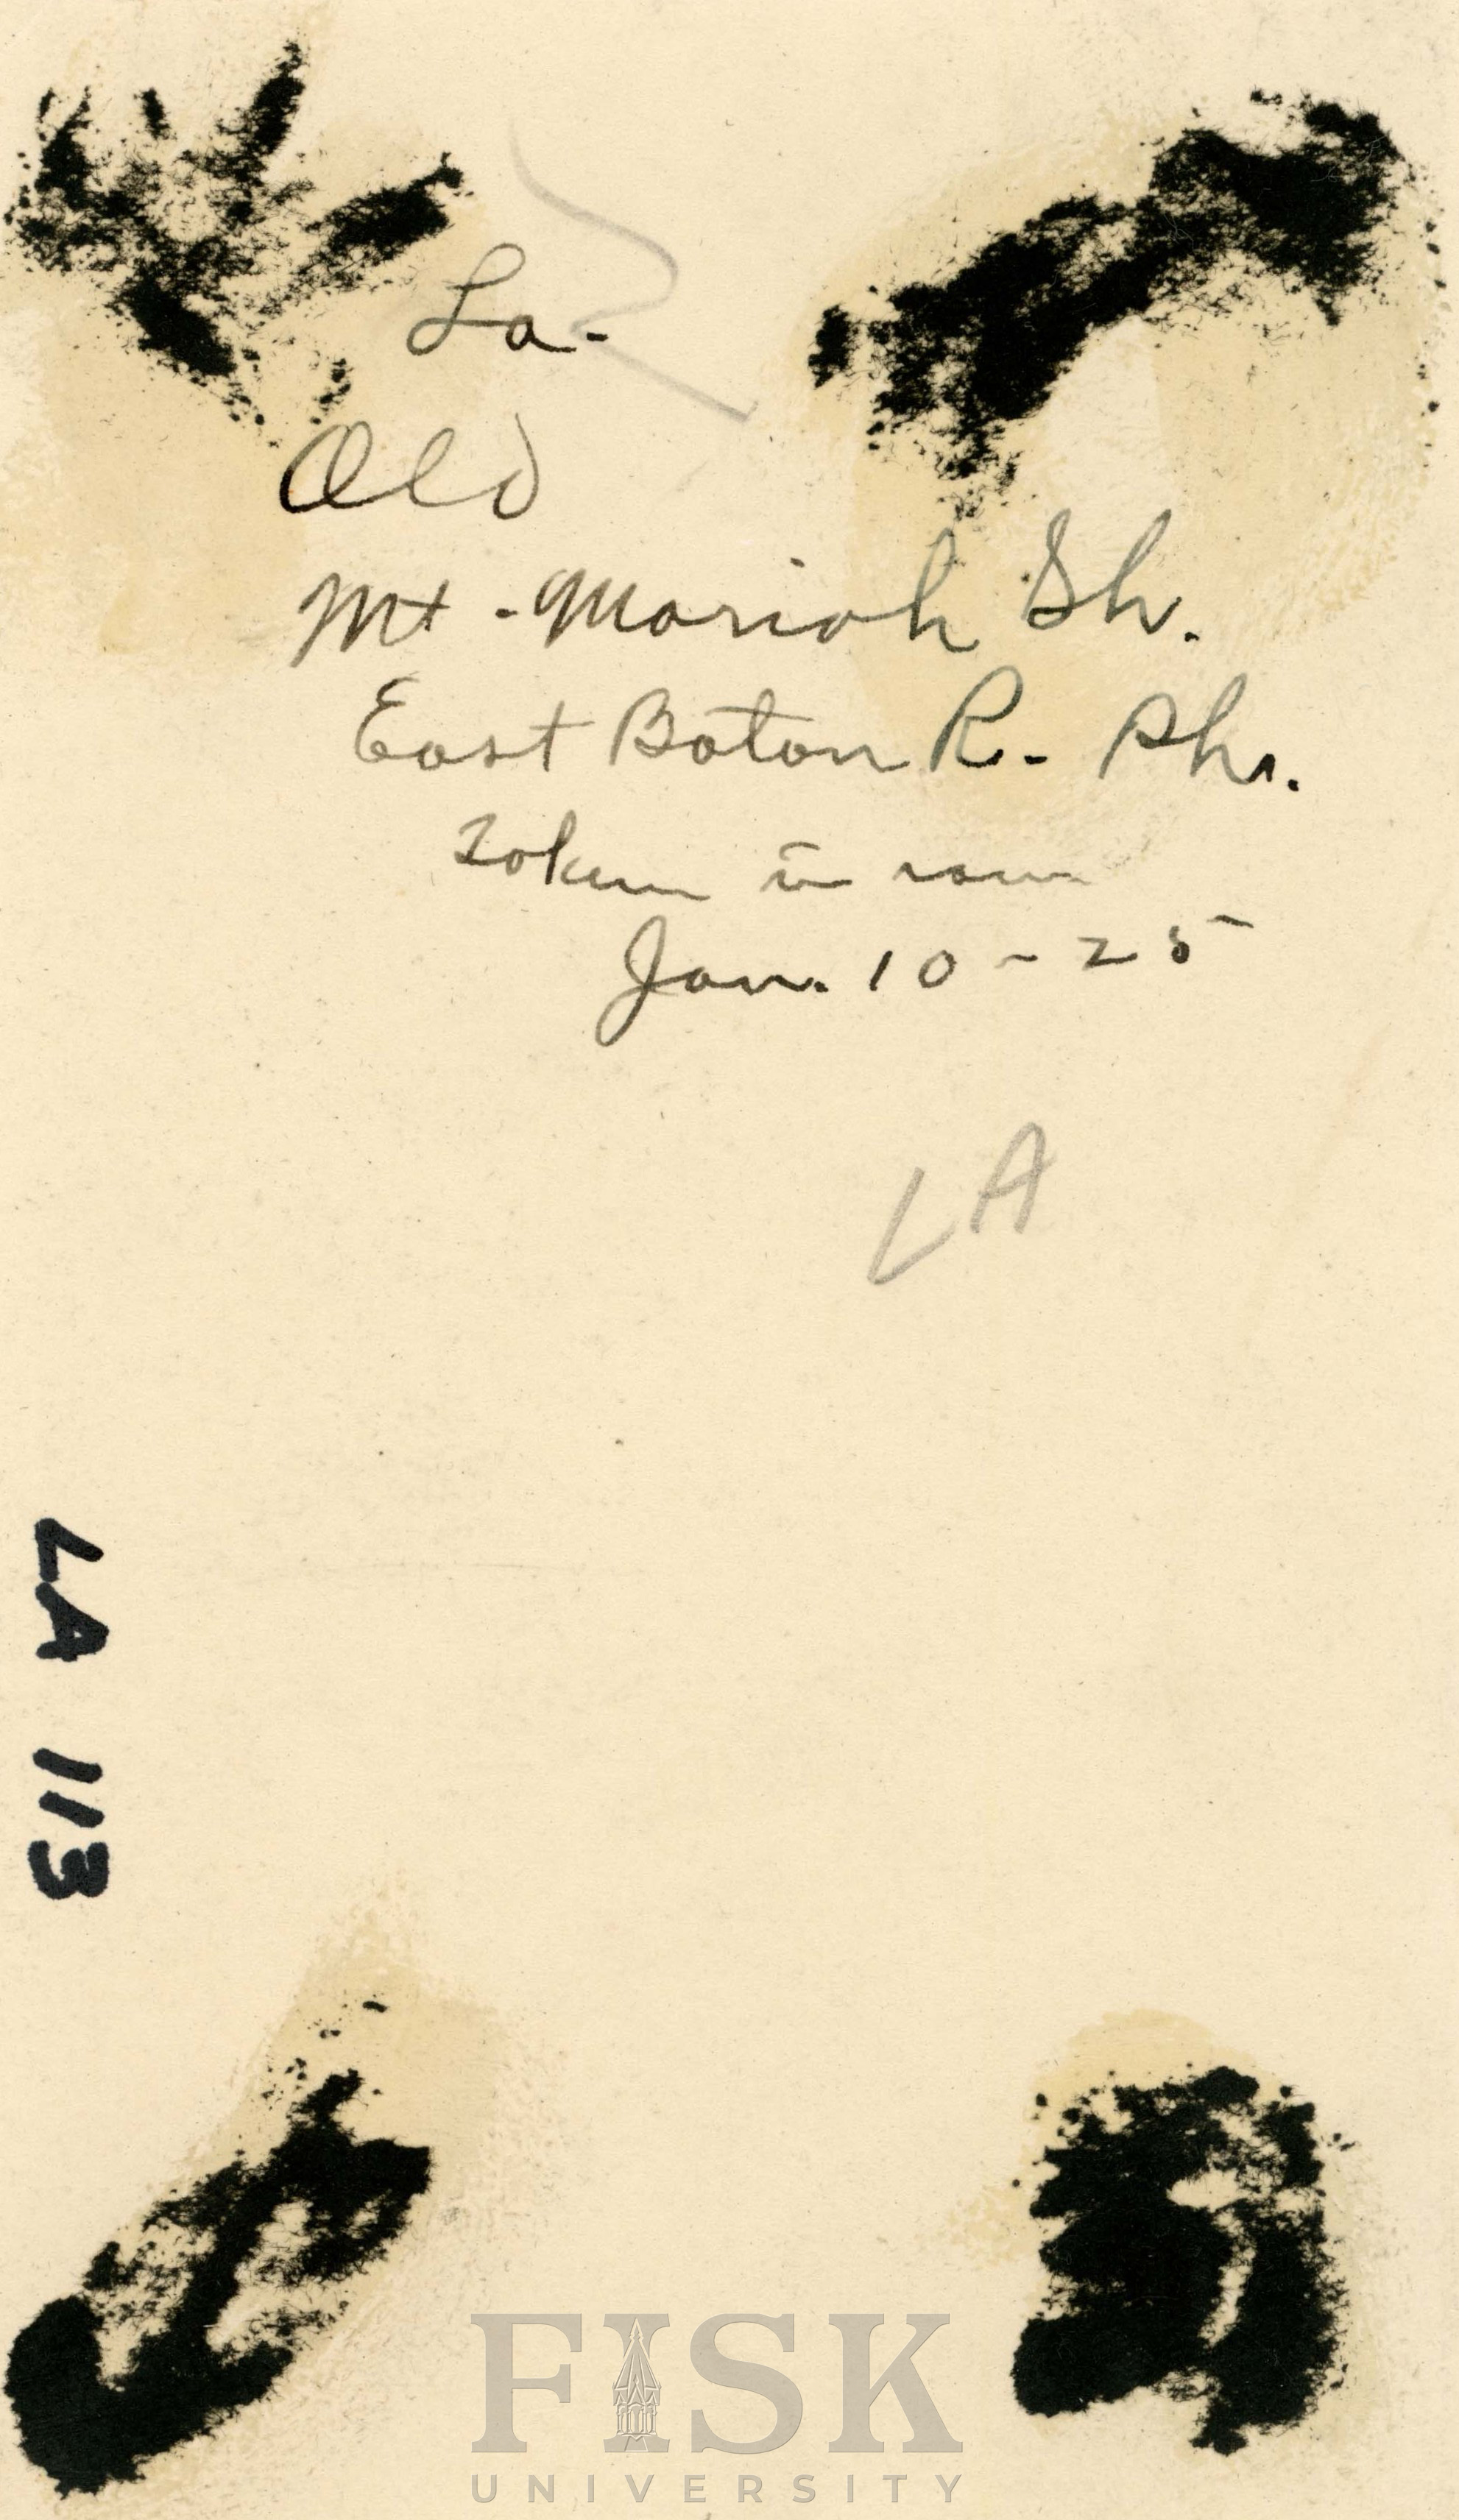 La.
Old
Mt. Moriah Sh.
East Baton R. Phr.
Taken in rain
Jan. 10-25
LA
LA 113
FISK
UNIVERSITY